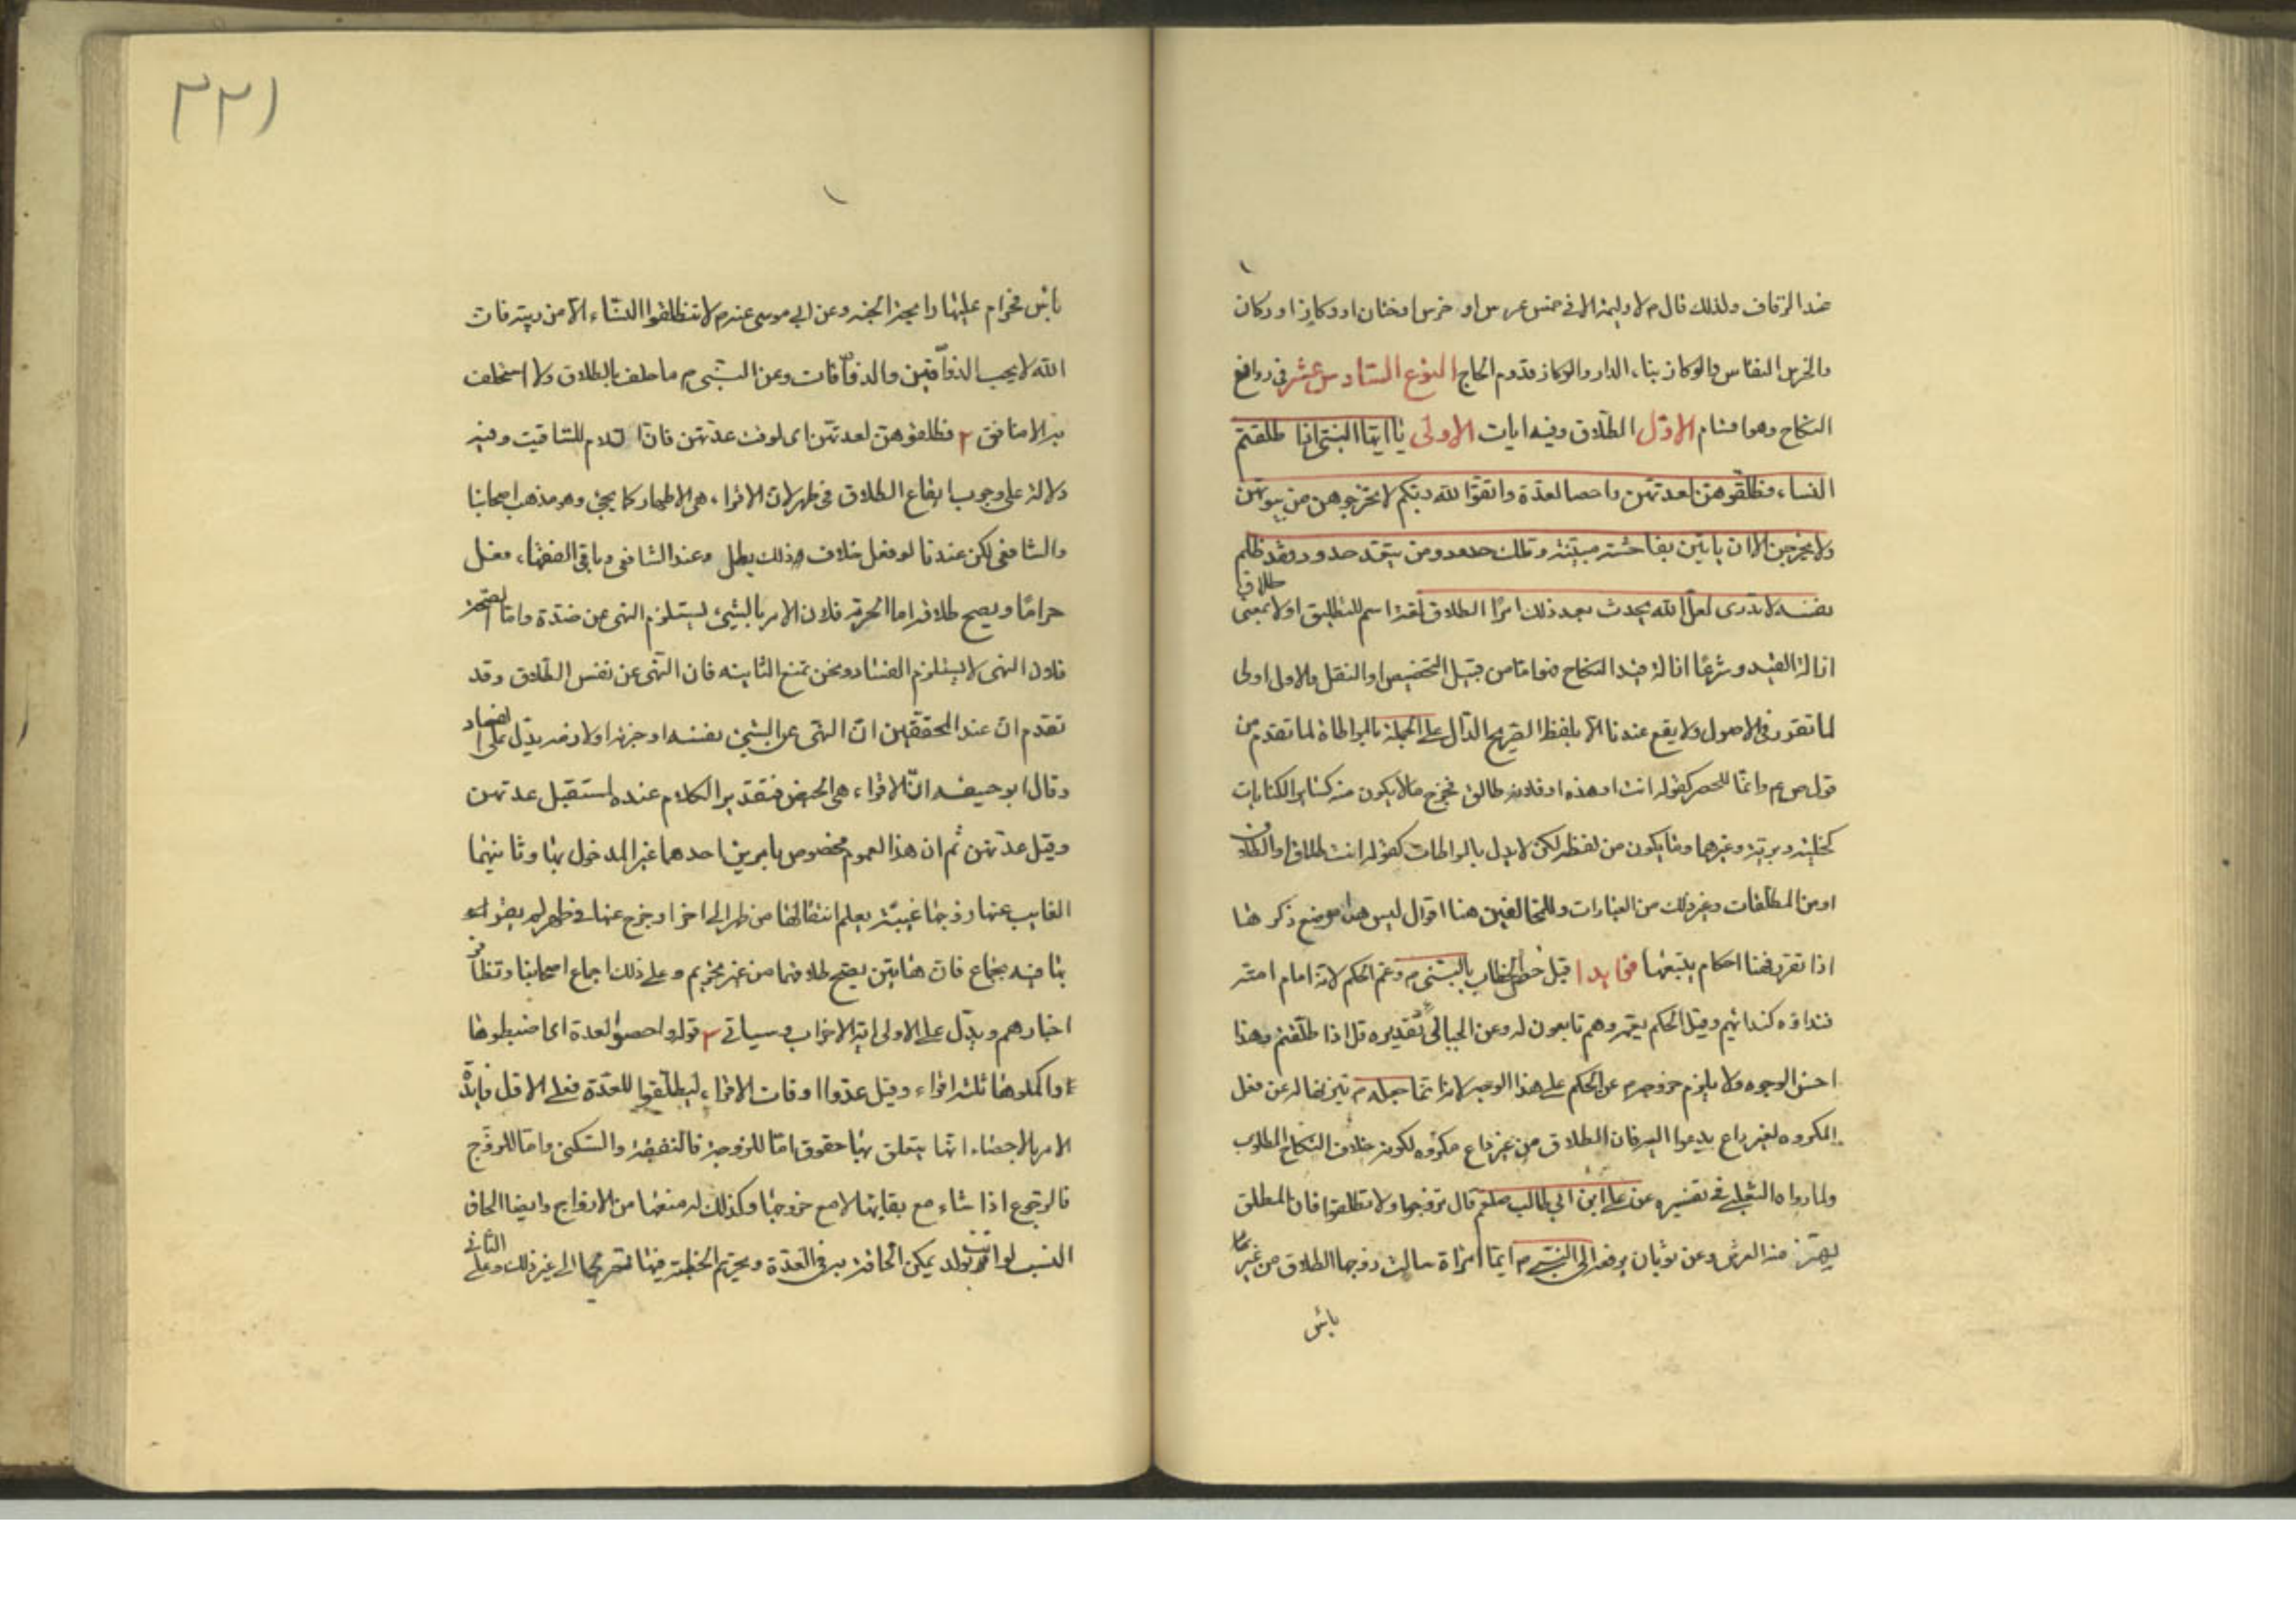 عند الزفاف ولذلك قال م لا وليمة الا في خمس عرس او خرس او ختان او وكاز او ركاز
والخرس النفاس والوكاز بناء الدار والركاز قدوم الحاج النوع السادس عشر في روافع
النكاح وهو اقسام الاول الطلاق وفيه ايات الاولى يا ايها النبي اذا طلقتم
النساء فطلقوهن لعدتهن واحصوا لعدة واتقوا الله ربكم لا تخرجوهن من بيوتهن
ولا يخرجن الا ان ياتين بفاحشة مبينة وتلك حدود ومن يتعد حدود فقد ظلم
نفسه لا تدرى لعل الله يحدث بعد ذلك امرا الطلاق لغة اسم للتطليق او لا بمعنى
طلاق
ازالة القيد وشرعا ازالة قيد النكاح فهو اما من قبيل التخصيص او النقل والاول اولى
لما تقرر في الاصول ولا يقع عندنا الا بلفظ الصريح الدال على الجملة بالمواطاة لما تقدم من
قوله ص م وانما للحصر كقوله انت او هذه او فلانة طالق فخرج ما لا يكون منه كساير الكنايات
كخلية وبرية وغيرهما وما يكون من لفظه لكن لا يدل بالمواطات كقوله انت طلاق او الطلاق
او من المطلقات وغير ذلك من العبارات وللمخالفين هنا اقوال ليس هذا موضع ذكرها
اذا تقرر فهنا احكام يتبعها فوايد ا قيل خص الخطاب بالنبي م وعم الحكم لانه امام امته
فنداؤه كندائهم وقيل الحكم يعمه وهم تابعون له وعن الجبائى تقديره قل اذا طلقتم وهذا
احسن الوجوه ولا يلزم خروجه عن الحكم على هذا الوجه لانه انما جعله م تنزيها له عن فعل
المكروه لغير داع يدعوا اليه فان الطلاق من غير داع مكروه لكونه خلاف النكاح المطلوب
ولما رواه الثعلبي في تفسيره عن علي ابن ابي طالب صلعم قال تزوجوا ولا تطلقوا فان المطلق
يهتز منه العرش وعن ثوبان يرفعه الى النبي م ايما امراة سالت زوجها الطلاق من غير ما
باس
٢٢١
باس فحرام عليها رايحة الجنة وعن ابي موسى عنه م لا تطلقوا النساء الا من ريبة فان
الله لا يحب الذواقين والذواقات وعن النبي م ما حلف بالطلاق ولا استحلف
به الا منافق ٢ فطلقوهن لعدتهن اى لوقت عدتهن فان اللام للتاقيت وفيه
دلالة على وجوب ايقاع الطلاق في طهر لان الاقراء هى الاطهار كما يجئ وهو مذهب اصحابنا
والشافعى لكن عندنا لو فعل خلاف ذلك بطل وعند الشافعى وباقى الفقهاء فعل
حراما ويصح طلاقه اما الحرمة فلان الامر بالشيء يستلزم النهى عن ضده واما الصحة
فلان النهى لا يستلزم الفساد ونحن نمنع الثانية فان النهى عن نفس الطلاق وقد
تقدم ان عند المحققين ان النهى عن الشيء نفسه او جزئه او لازمه يدل على الفساد
وقال ابو حنيفه ان الاقراء هى الحيض فتقدير الكلام عنده لمستقبل عدتهن
وقبل عدتهن ثم ان هذا العموم مخصوص بامرين احدهما غير المدخول بها وثانيهما
الغايب عنها زوجها غيبة يعلم انتقالها من طهر الى اخر او خرج عنها في طهر لم يقر
بها فيه بجماع فان هاتين يصح طلاقهما من غير تحريم وعلى ذلك اجماع اصحابنا وتظافر
اخبارهم ويدل على الاولى اية الاحزاب وسياتى ٣ قوله واحصوا العدة اى اضبطوها
واكملوها ثلثة اقراء وقيل عدوا اوقات الاقراء ليطلقوا للعدة فعلى الاول فايدة
الامر بالاحصاء انها يتعلق بها حقوق اما للزوجة فالنفقة والسكنى واما للزوج
فالرجوع اذا شاء مع بقائها لا مع خروجها وكذلك له منعها من الازواج وايضا الحاق
النسب لو اتت بولد يمكن الحاقه به في العدة وتحريم الخطبة فيها تصريحا الى غير ذلك وعلى الثاني